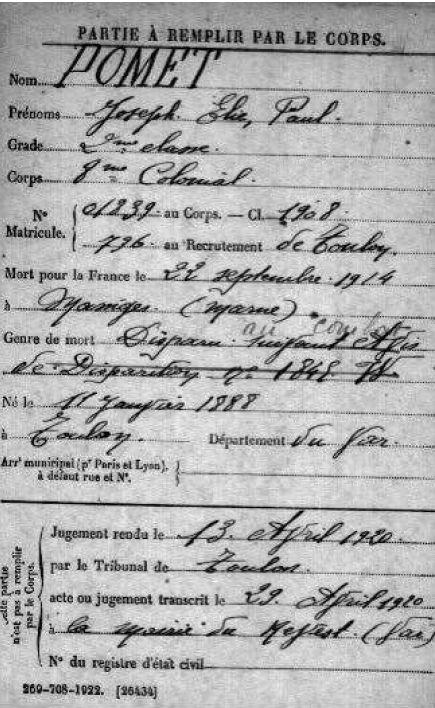 PARTIE À REMPLIR PAR LE CORPS.
Nom POMET
Prénoms Joseph Elie, Paul
Grade 2me classe.
Corps 8me Colonial.
N° Matricule. 01239 au Corps. — Cl. 1908
736 au Recrutement de Toulon
Mort pour la France le 22 septembre 1914
à Massiges (Marne)
au combat
Genre de mort Disparu suivant Avis
de Disparition n° 1848
Né le 11 Janvier 1888
à Toulon. Département du Var.
Arrt municipal (pr Paris et Lyon).
à défaut rue et N°.
Cette partie
n'est pas à remplir
par le Corps.
Jugement rendu le 13 Avril 1920
par le Tribunal de Toulon
acte ou jugement transcrit le 29 Avril 1920
à la mairie du Revest. (Var)
N° du registre d'état civil
269-708-1922. [26434]